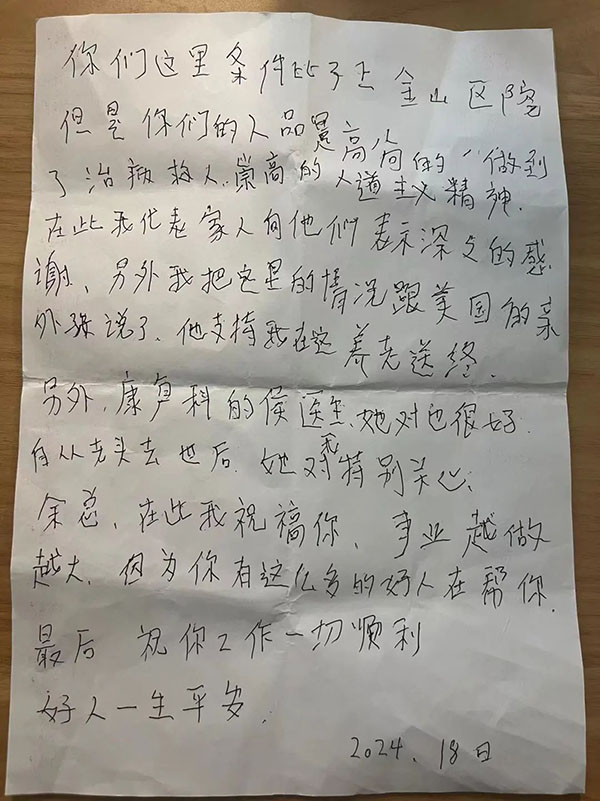 你们这里条件比不上金山区院
但是你们的人品是高尚的“做到
了治病救人.崇高的人道主义精神.
在此我代表家人向他们表示深文的感
谢、另外我把这里的情况跟美国的亲
外孙说了、他支持我在这养老送终.
另外.康复科的侯医生.她对也很好.
自从老头去世后.她对我特别关心;
余总、在此我祝福你、事业越做
越大.因为你有这么多的好人在帮你.
最后 祝你工作一切顺利
好人一生平安.
2024、18日